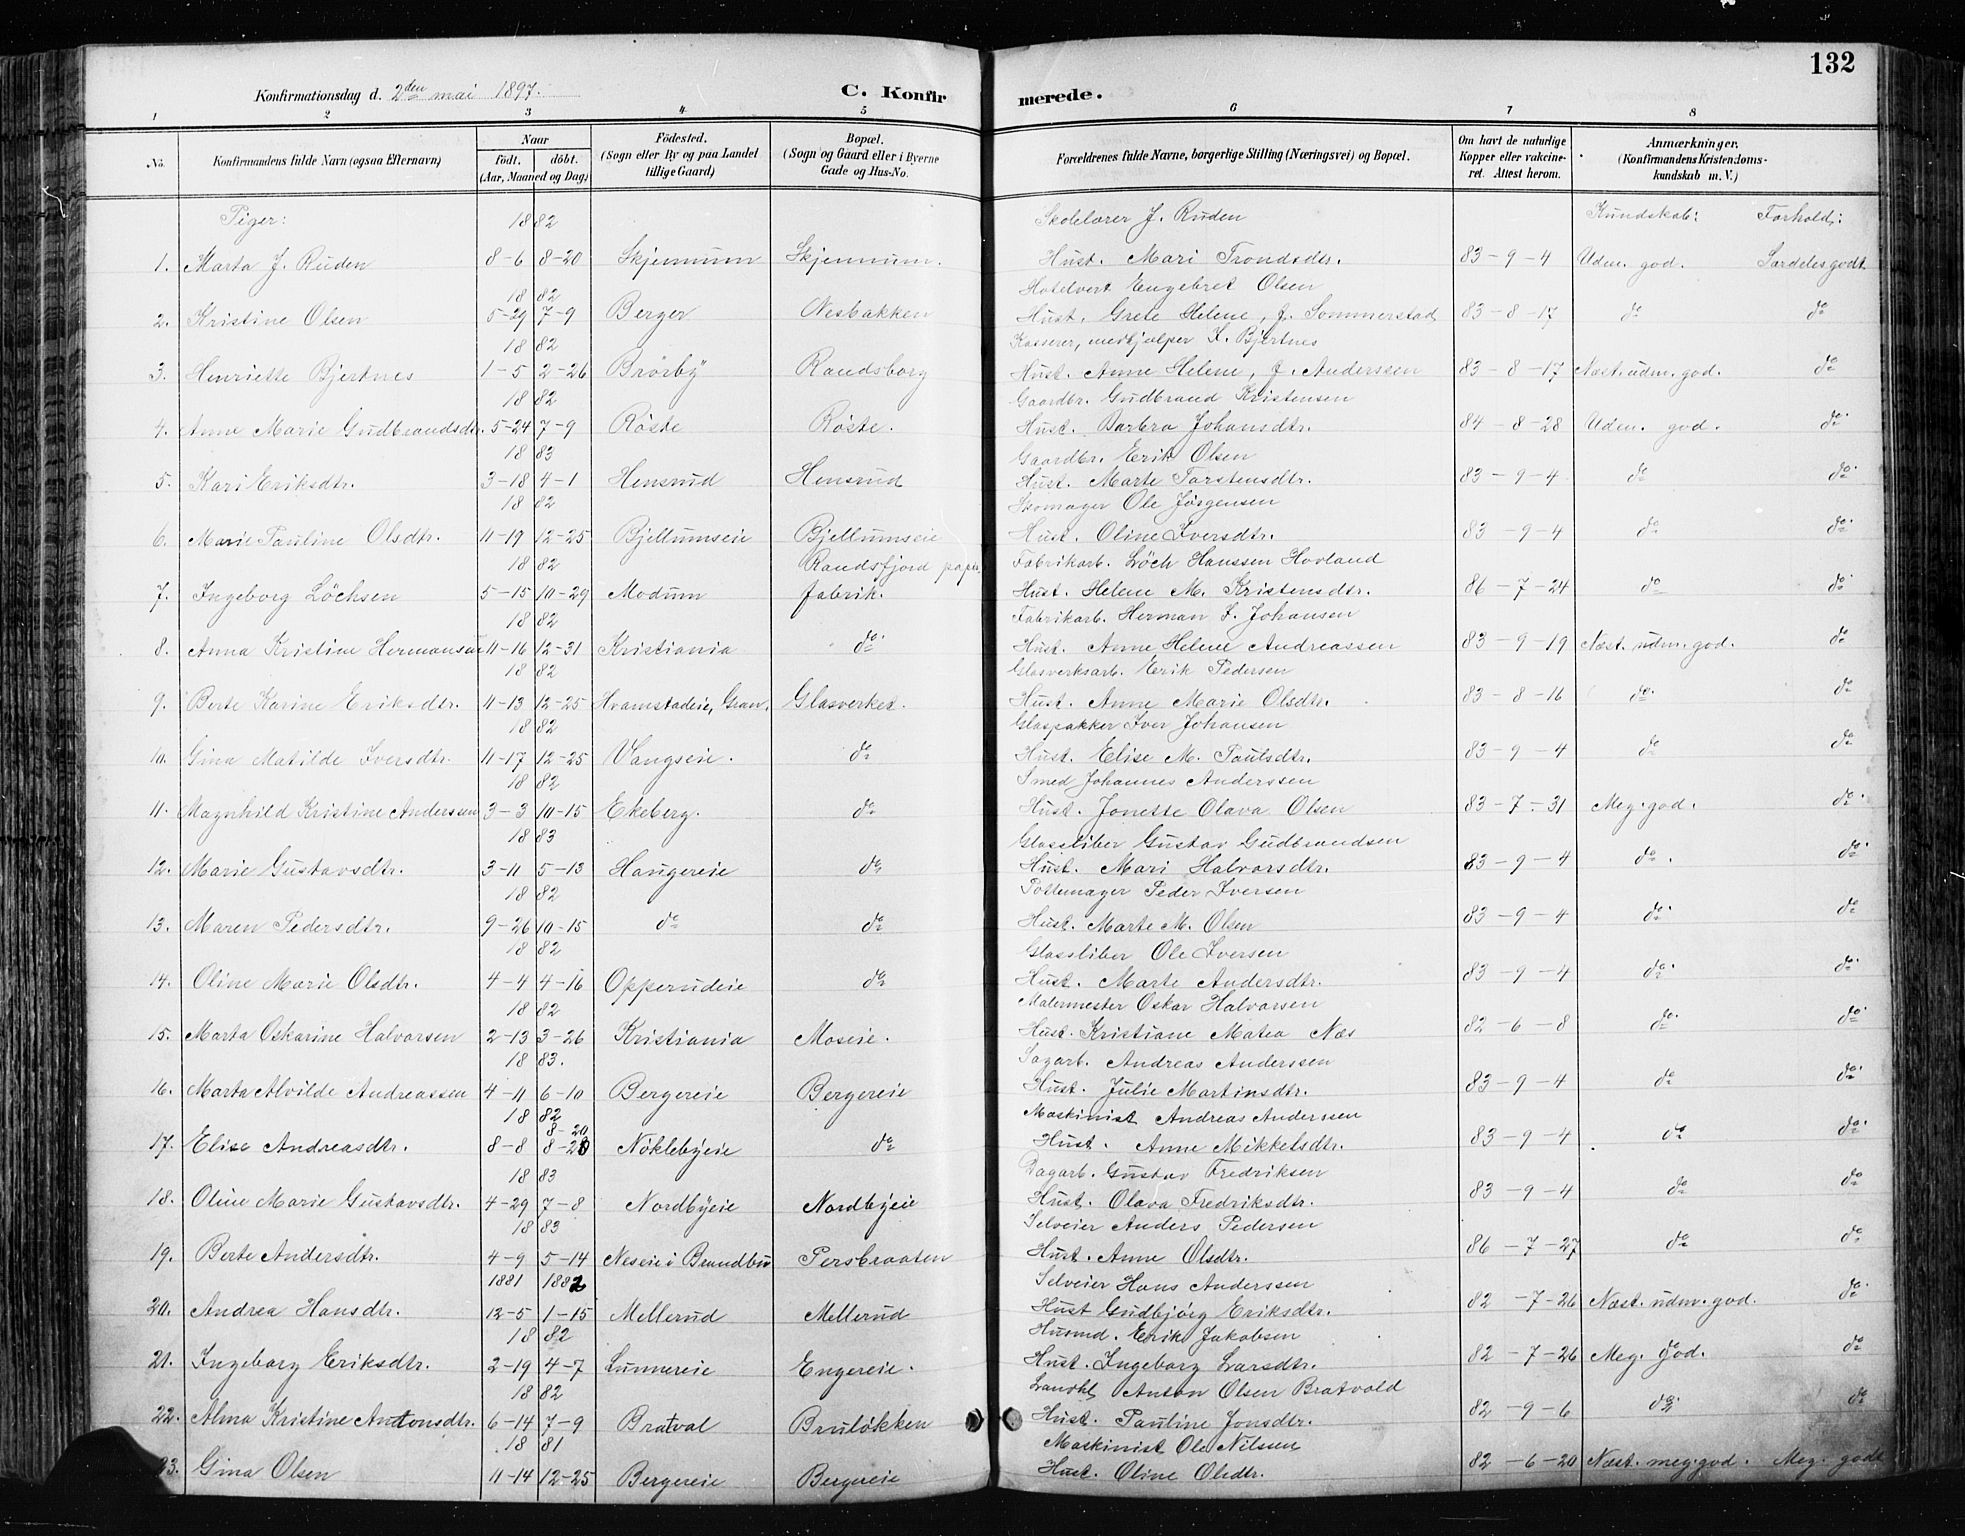 132
Konfirmationsdag d. 2den mai 1897.
C. Konfirmerede.
1 2 3 4 5 6 7 8
No. Konfirmandens fulde Navn (ogsaa Efternavn) Naar født. døbt. (Aar, Maaned og Dag) Fødested. (Sogn eller By og paa Landet tillige Gaard) Bopæl. (Sogn og Gaard eller i Byerne Gade og Hus-No. Forældrenes fulde Navne, borgerlige Stilling (Næringsvei) og Bopæl. Om havt de naturlige Kopper eller vakcineret. Attest herom. Anmærkninger. (Konfirmandens Kristendomskundskab m. V.)
Piger: 1882 Skolelærer J. Ruden Kundskab: Forhold:
1. Marta J. Ruden 8-6 8-20 Skjennum Skjennum. Hust. Mari Trondsdtr. 83-9-4 Udm. god. Særdeles godt
1882 Hotelvert Engebret Olsen
2. Kristine Olsen 5-29 7-9 Berger Nesbakken Hust. Grete Helene, f. Sommerstad 83-8-17 do do
1882 Kasserer, medhjælper K. Bjertnes
3. Henriette Bjertnes 1-5 2-26 Brørby Randsborg Hust. Anne Helene, f. Anderssen 83-8-17 Næst. udm. god. do
1882 Gaardbr. Gudbrand Kristensen
4. Anne Marie Gudbrandsdtr. 5-24 7-9 Røste Røste. Hust. Barbra Johansdtr. 84-8-28 Udm. god. do
1883 Gaardbr. Erik Olsen
5. Kari Eriksdtr. 3-18 4-1 Hensrud Hensrud Hust. Marte Torstensdtr. 83-9-4 do do
1882 Skomager Ole Jørgensen
6. Marie Pauline Olsdtr. 11-19 12-25 Bjellumseie Bjellumseie Hust. Oline Iversdtr. 83-9-4 do do
1882 Randsfjord papir Fabrikarb. Løch Hanssen Hovland
7. Ingeborg Löchsen 5-15 10-29 Modum fabrik. Hust. Helene M. Kristensdtr. 86-7-24 do do
1882 Fabrikarb. Herman L. Johansen
8. Anna Kristine Hermansen 11-16 12-31 Kristiania do Hust. Anne Helene Andreassen 83-9-19 Næst. udm. god. do
1882 Glasverksarb. Erik Pedersen
9. Berte Karine Eriksdtr. 11-13 12-25 Hvamstadeie, Gran. Glasverket. Hust. Anne Marie Olsdtr. 83-8-16 do do
1882 Glaspakker Iver Johansen
10. Gina Matilde Iversdtr. 11-17 12-25 Vangseie. do Hust. Elise M. Paulsdtr. 83-9-4 do do
1882 Smed Johannes Anderssen
11. Magnhild Kristine Anderssen 3-3 10-15 Ekeberg. do Hust. Jonette Olava Olsen 83-7-31 Meg. god. do
1883 Glassliber Gustav Gudbrandsen
12. Marie Gustavsdtr. 3-11 5-13 Haugereie do Hust. Mari Halvorsdtr. 83-9-4 do. do
1882 Pottemager Peder Iversen
13. Maren Pedersdtr. 9-26 10-15 do do Hust. Marte M. Olsen 83-9-4 do do
1882 Glassliber Ole Iversen
14. Oline Marie Olsdtr. 4-4 4-16 Opperudeie do Hust. Marte Andersdtr. 83-9-4 do do
1882 Malermester Oskar Halvorsen
15. Marta Oskarine Halvorsen 2-13 3-26 Kristiania Moseie. Hust. Kristiane Matea Næs 82-6-8 do do
1883. Sagarb. Andreas Anderssen
16. Marta Alvilde Andreassen 4-11 6-10 Bergereie Bergereie Hust. Julie Martinsdtr. 83-9-4 do do
1882 8-20 Maskinist Andreas Anderssen
17. Elise Andreasdtr. 8-8 8-20 Nøklebyeie do Hust. Anne Mikkelsdtr. 83-9-4 do do
1883 Dagarb. Gustav Fredriksen
18. Oline Marie Gustavsdtr. 4-29 7-8 Nordbyeie Nordbyeie Hust. Olava Fredriksdtr. 83-9-4 do do
1883 Selveier Anders Pedersen
19. Berte Andersdtr. 4-9 5-14 Neseie i Brandbu Persbraaten Hust. Anne Olsdtr. 86-7-27 do do
1881 1882 Selveier Hans Anderssen
20. Andrea Hansdtr. 12-5 1-15 Mellerud Mellerud Hust Gudbjørg Eriksdtr. 82-7-26 Næst. udm. god. do
1882 Husmd. Erik Jakobsen
21. Ingeborg Eriksdtr. 2-19 4-7 Lunnereie Engereie. Hust. Ingeborg Larsdtr. 82-7-26 Meg. god. do
1882 Landhl Anton Olsen Bratvold
22. Alma Kristine Antonsdtr. 6-14 7-9 Bratval Bruløkken Hust. Pauline Jonsdtr. 82-9-6 do do
1881 Maskinist Ole Nilsen
23. Gina Olsen 11-14 12-25 Bergereie Bergereie Hust. Oline Olsdtr. 82-6-20 Næst. meg. god. Meg. godt